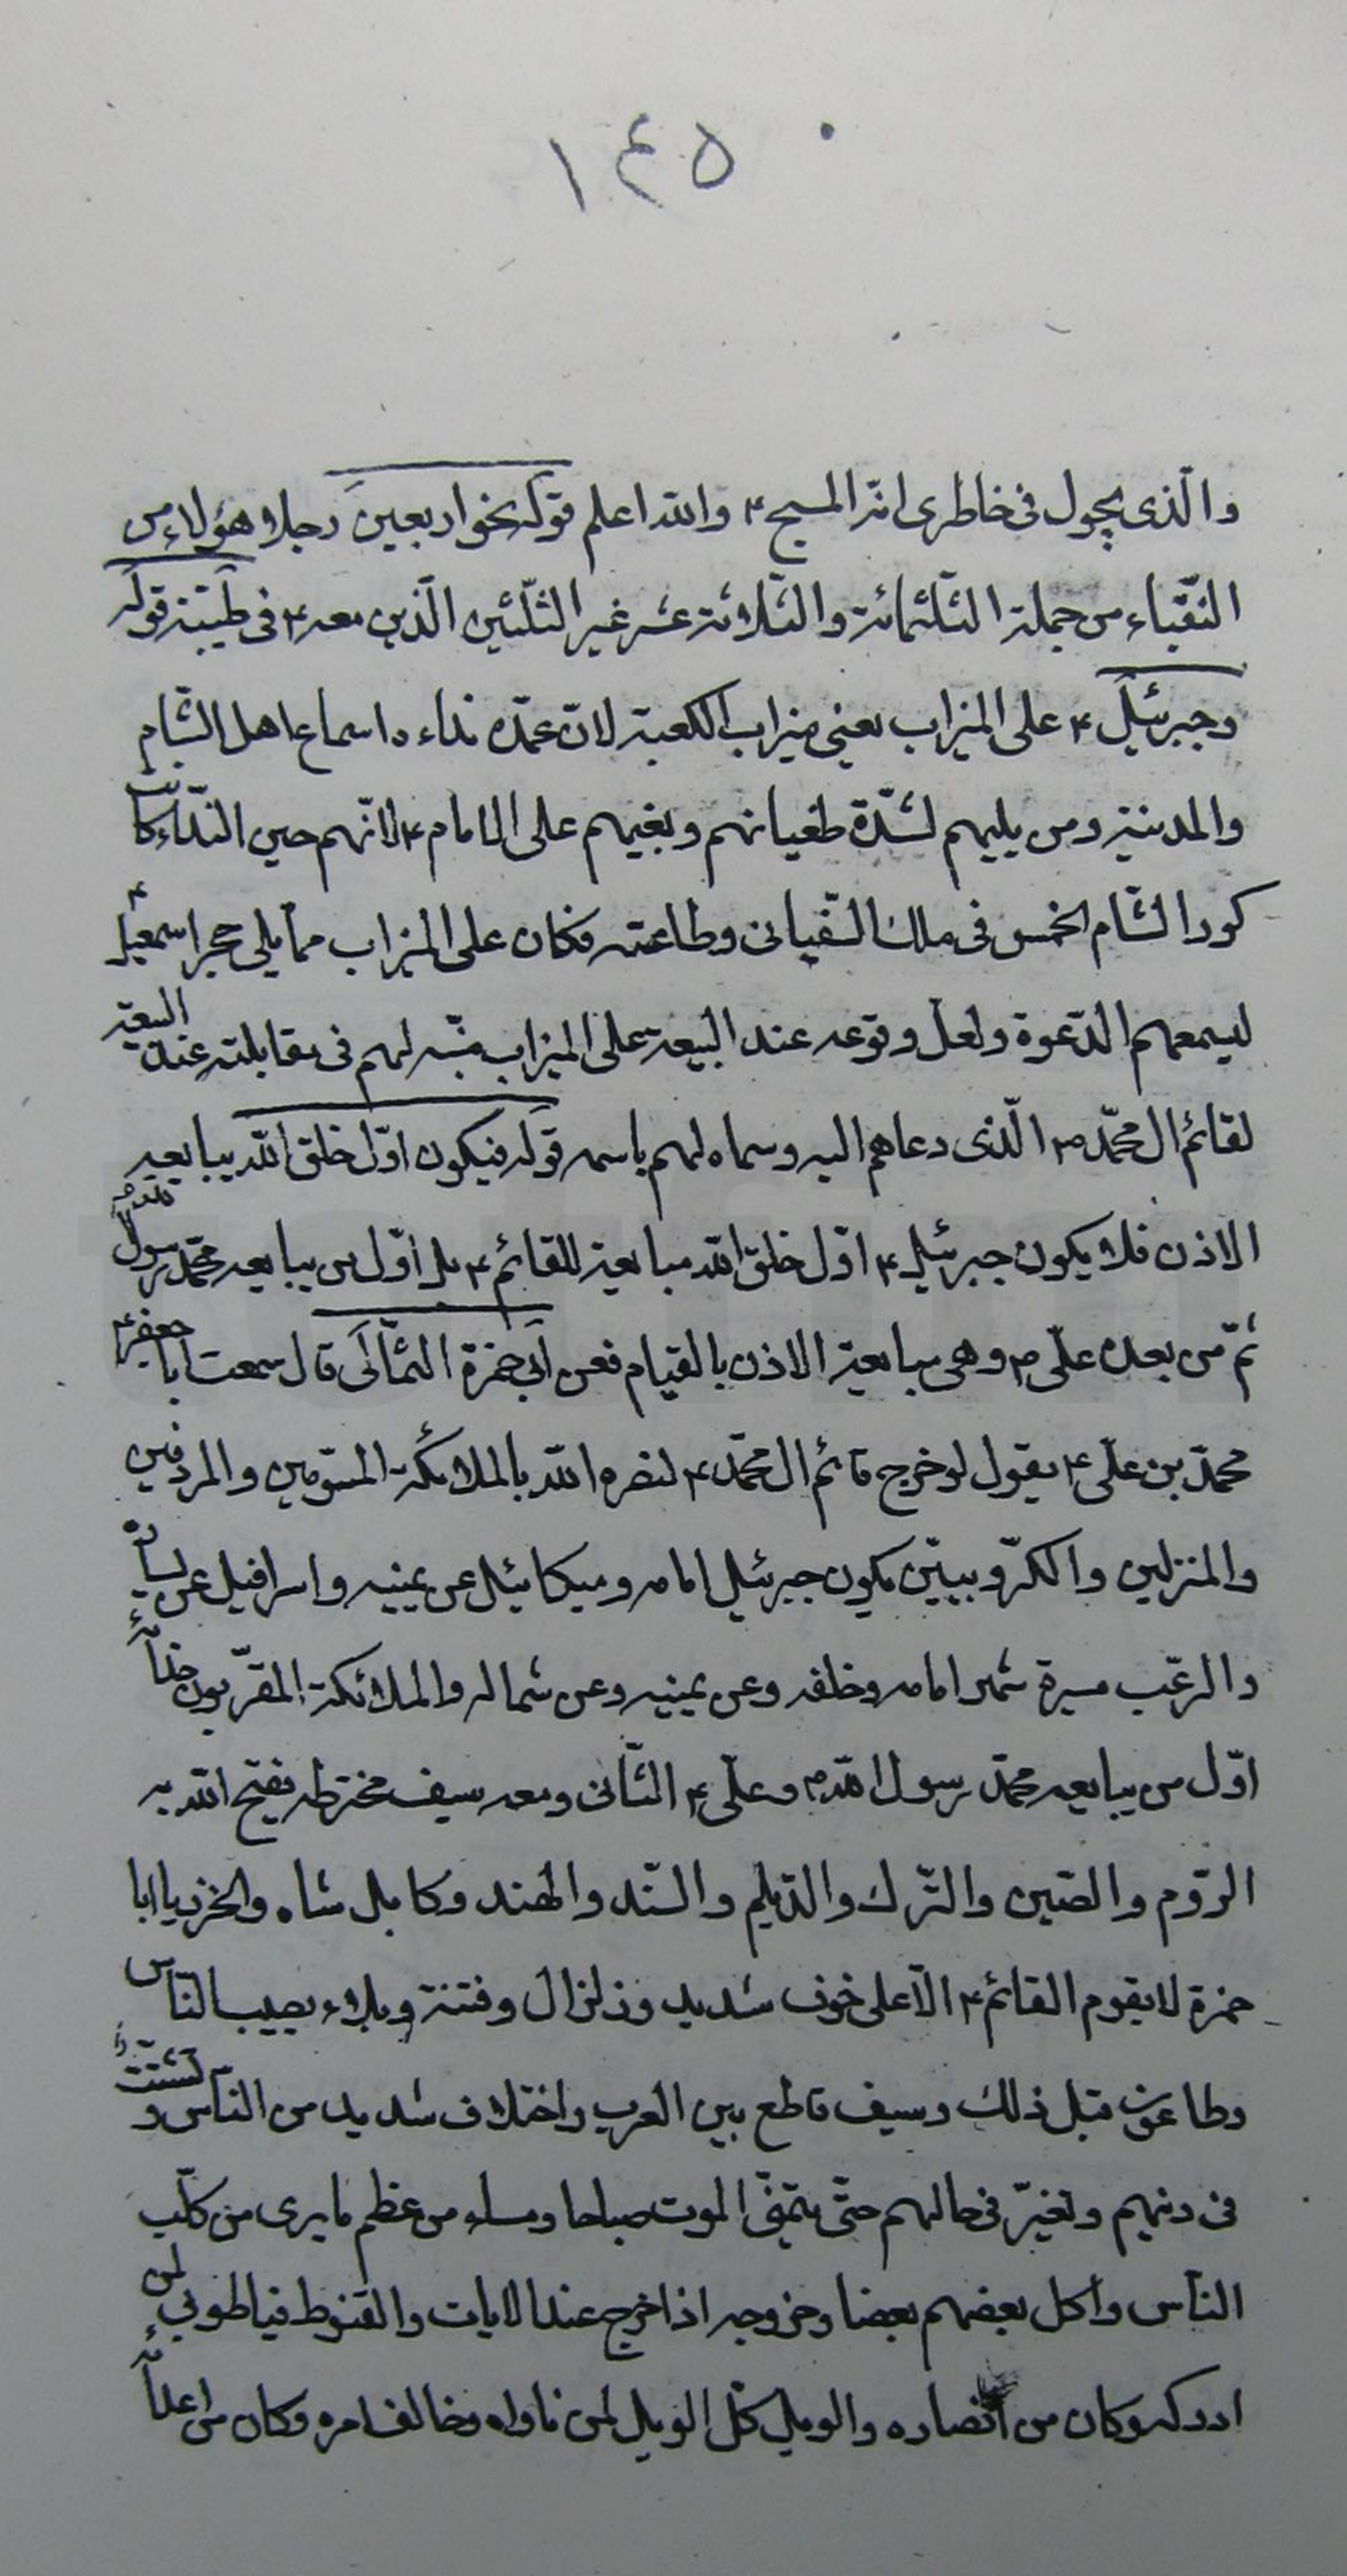 ١٤٥
والّذى يجول فى خاطرى انّه المسيح ٤ والله اعلم قوله نحو اربعين رجلا هؤلاء من
النّقباء من جملة الثلثمائة والثلاثة عشر غير الثّلثين الّذين معه ٤ فى طيبة قوله
وجبرئيل ٤ على الميزاب يعنى ميزاب الكعبة لانّ عمدة نداءه اسماع اهل الشّام
والمدينة ومن يليهم لشدّة طغيانهم وبغيهم على الامام ٤ لانّهم حين النّداء كانت
كور الشّام الخمس فى ملك السّفيانى وطاعته فكان على الميزاب ممّا يلى حجر اسمعيل ٤
ليسمعهم الدّعوة ولعل وقوعه عند البيعة على الميزاب منبّه لهم فى مقابلته عند البيعة
لقائم ال محمّد ٤ الّذى دعاهم اليه وسماه لهم باسمه قوله فيكون اوّل خلق الله يبايعه
الاذن فلا يكون جبرئيل ٤ اوّل خلق الله مبايعة للقائم ٤ بل اوّل من يبايعه محمّد رسول الله ص
ثمّ من بعده علىّ ٤ وهى مبايعة الاذن بالقيام فعن ابى حمزة الثّمالى قال سمعت ابا جعفر ٤
محمّد بن علىّ ٤ يقول لو خرج قائم ال محمّد ٤ لنصره الله بالملائكة المسوّمين والمردفين
والمنزلين والكرّوبيّين يكون جبرئيل امامه وميكائيل عن يمينه واسرافيل عن يساره
والرعب مسيرة شهر امامه وخلفه وعن يمينه وعن شماله والملائكة المقرّبون حذاءه
اوّل من يبايعه محمّد رسول الله ص وعلىّ ٤ الثّانى ومعه سيف مخترطه يفتح الله به
الرّوم والصّين والتّرك والدّيلم والسّند والهند وكابل شاه والخزر يا ابا
حمزة لا يقوم القائم ٤ الّا على خوف شديد وزلزال وفتنة وبلاء يصيب النّاس
وطاعون قبل ذلك وسيف قاطع بين العرب واختلاف شديد من النّاس وتشتّت
فى دينهم وتغيّر فى حالهم حتّى يتمنّى الموت صباحا ومساء من عظم ما يرى من كلب
النّاس واكل بعضهم بعضا وخروجه اذا خرج عند الاياب والقنوط فيا طوبى لمن
ادركه وكان من انصاره والويل كلّ الويل لمن ناواه وخالف امره وكان من اعداءه